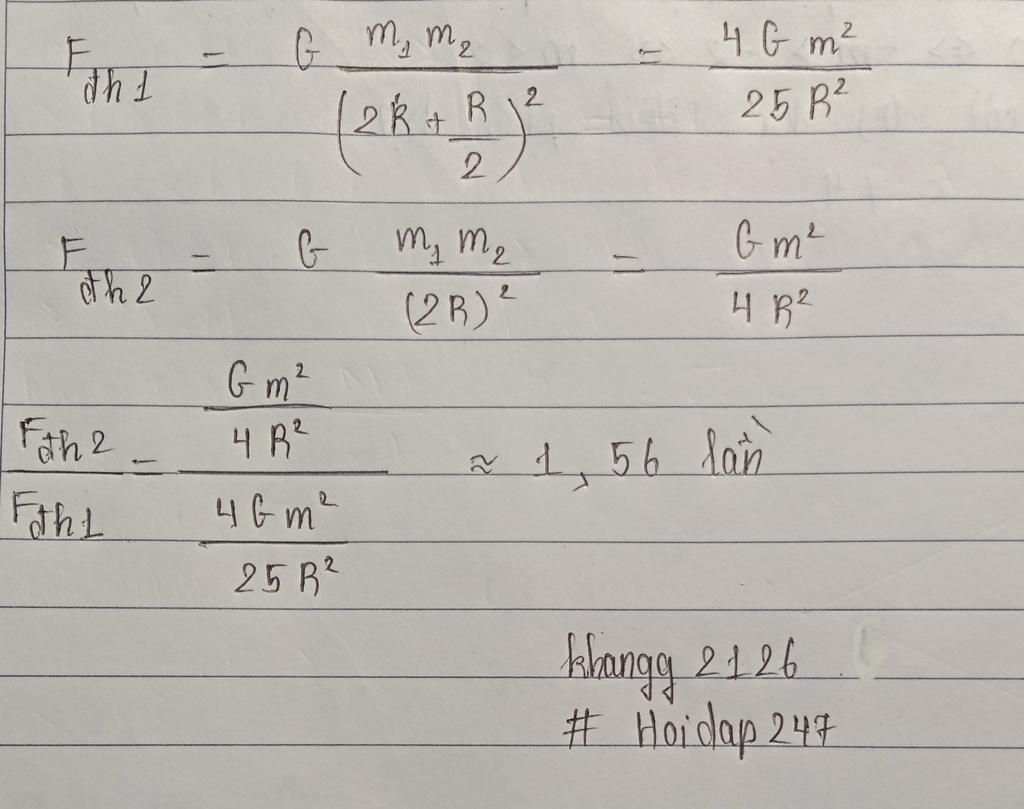 F_đh1 = G m₁ m₂ / (2R + R/2)² = 4 G m² / 25 R²
F_đh2 = G m₁ m₂ / (2R)² = G m² / 4 R²
F_đh2 / F_đh1 = (G m² / 4 R²) / (4 G m² / 25 R²) ≈ 1,56 lần
khangg 2126
# Hoidap 247